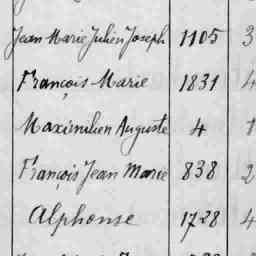 Jean Marie Julien Joseph 1105 3
François Marie 1831 4
Maximilien Auguste 4 1
François Jean Marie 838 2
Alphonse 1728 4